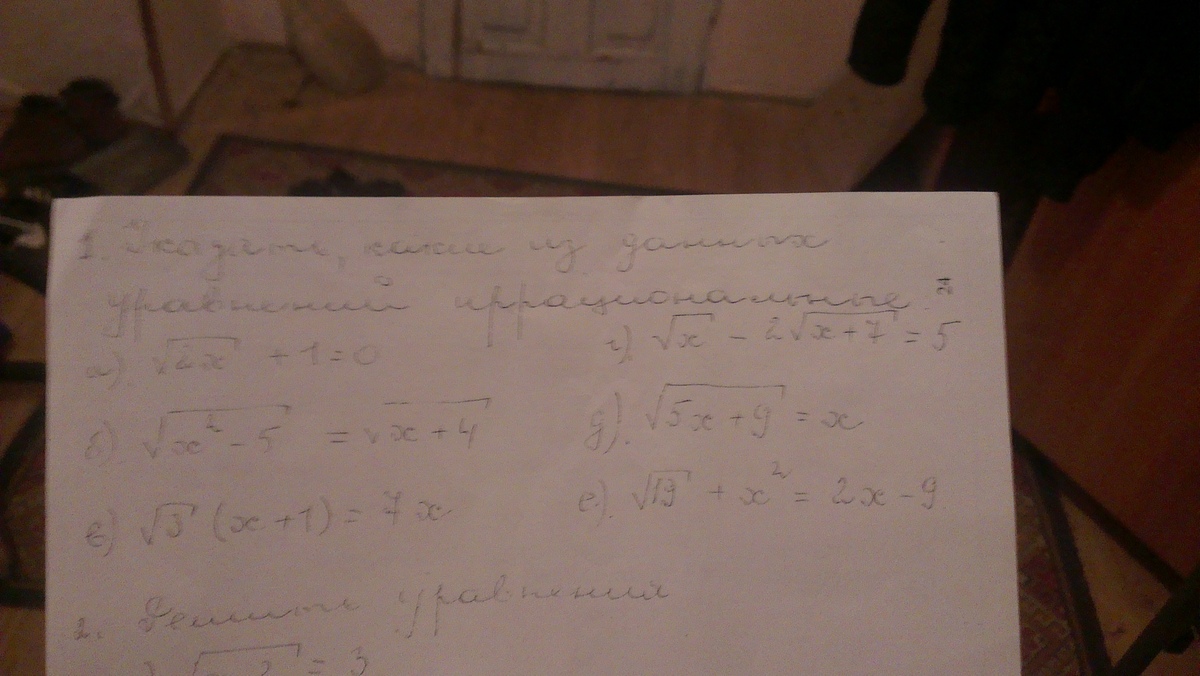 1. Указать, какие из данных
уравнений иррациональные
а). √2x + 1 = 0
г). √x - 2√x+7 = 5
б). √x² - 5 = √x + 4
д). √5x + 9 = x
в) √3 (x + 1) = 7x
е). √13 + x² = 2x - 9
2. Решить уравнения
= 3